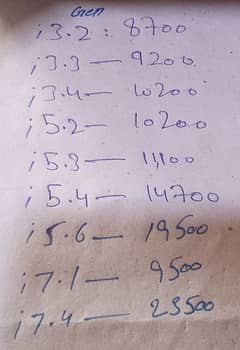 Gen
i3.2: 8700
i3.3 — 9200
i3.4 — 10200
i5.2 — 10200
i5.3 — 11,100
i5.4 — 14700
i5.6 — 19500
i7.1 — 9500
i7.4 — 23500